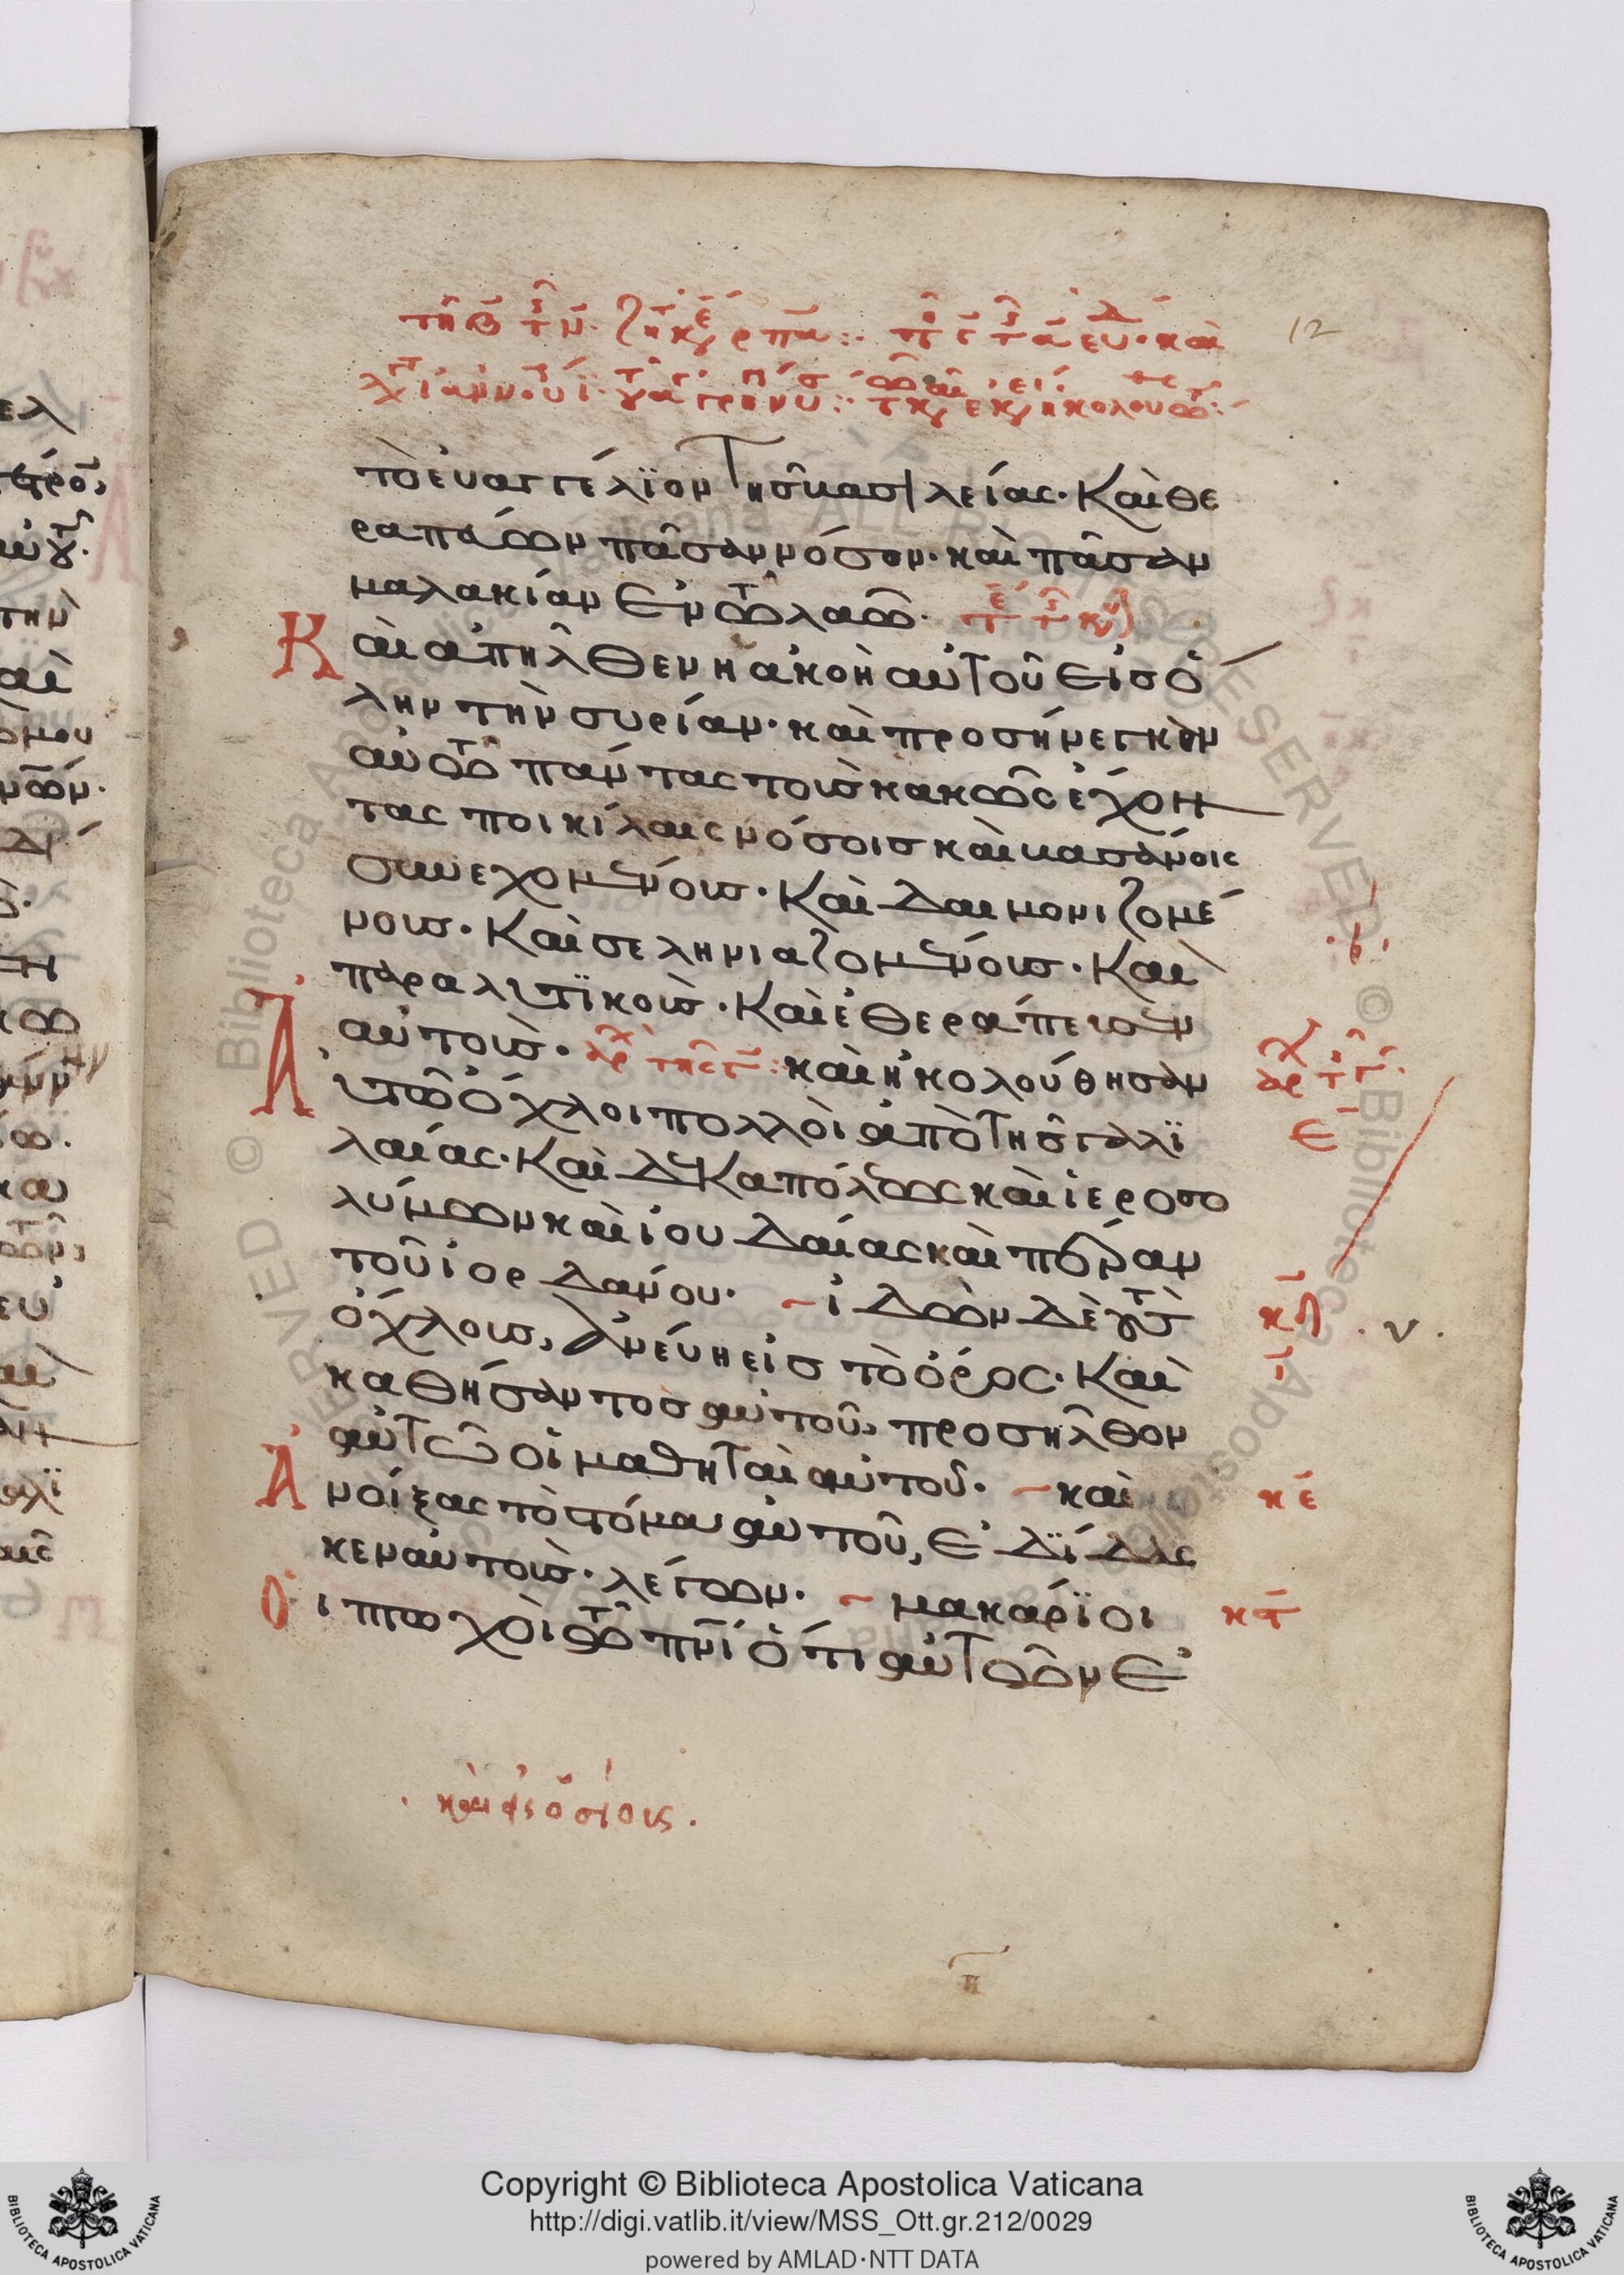 12
τὸ ἐυαγγέλϊον τῆς βασιλείας· Καὶ θε
ραπεύων πᾶσαν νόσον· καὶ πᾶσαν
μαλακίαν ἐν τῶ λαῶ·
Καὶ ἀπῆλθεν ἡ ἀκοὴ αὐτοῦ εἰς ὅ
λην τὴν συρίαν· καὶ προσήνεγκαν
αὐτῶ πάντας τοὺς κακῶς ἔχον
τας ποικίλαις νόσοις καὶ βασάνοις
συνεχομένους· Καὶ δαιμονιζομέ
νους· Καὶ σεληνιαζομένους· Καὶ
παραλυτϊκοὺς· Καὶ ἐθεράπευσεν
αὐτοὺς· καὶ ἠκολούθησαν
Αὐτῶ ὄχλοι πολλοὶ ἀπὸ τῆς γαλϊ
λαίας· Καὶ δεκαπόλεως καὶ ἱεροσο
λύμων καὶ ἰουδαίας καὶ πέραν
τοῦ ἰορδάνου· ἰδὼν δὲ τοὺς
ὄχλους, ἀνέβη εἰς τὸ ὄρος· Καὶ
καθήσαντος αὐτοῦ, προσῆλθον
αὐτῶ οἱ μαθηταὶ αὐτοῦ· καὶ
Ἀνοίξας τὸ στόμα αὐτοῦ, ἐδίδας
κεν αὐτοὺς· λέγων· μακάρϊοι
Οἱ πτωχοὶ τῶ πνί ὅτι αὐτῶν ἐ
Copyright © Biblioteca Apostolica Vaticana
http://digi.vatlib.it/view/MSS_Ott.gr.212/0029
powered by AMLAD·NTT DATA